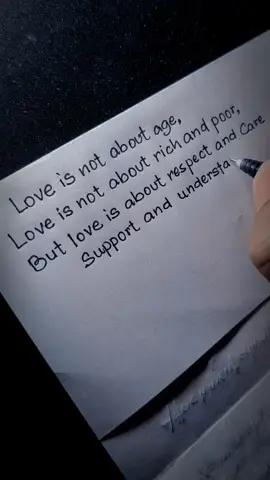 Love is not about age,
Love is not about rich and poor,
But love is about respect and Care
Support and understa